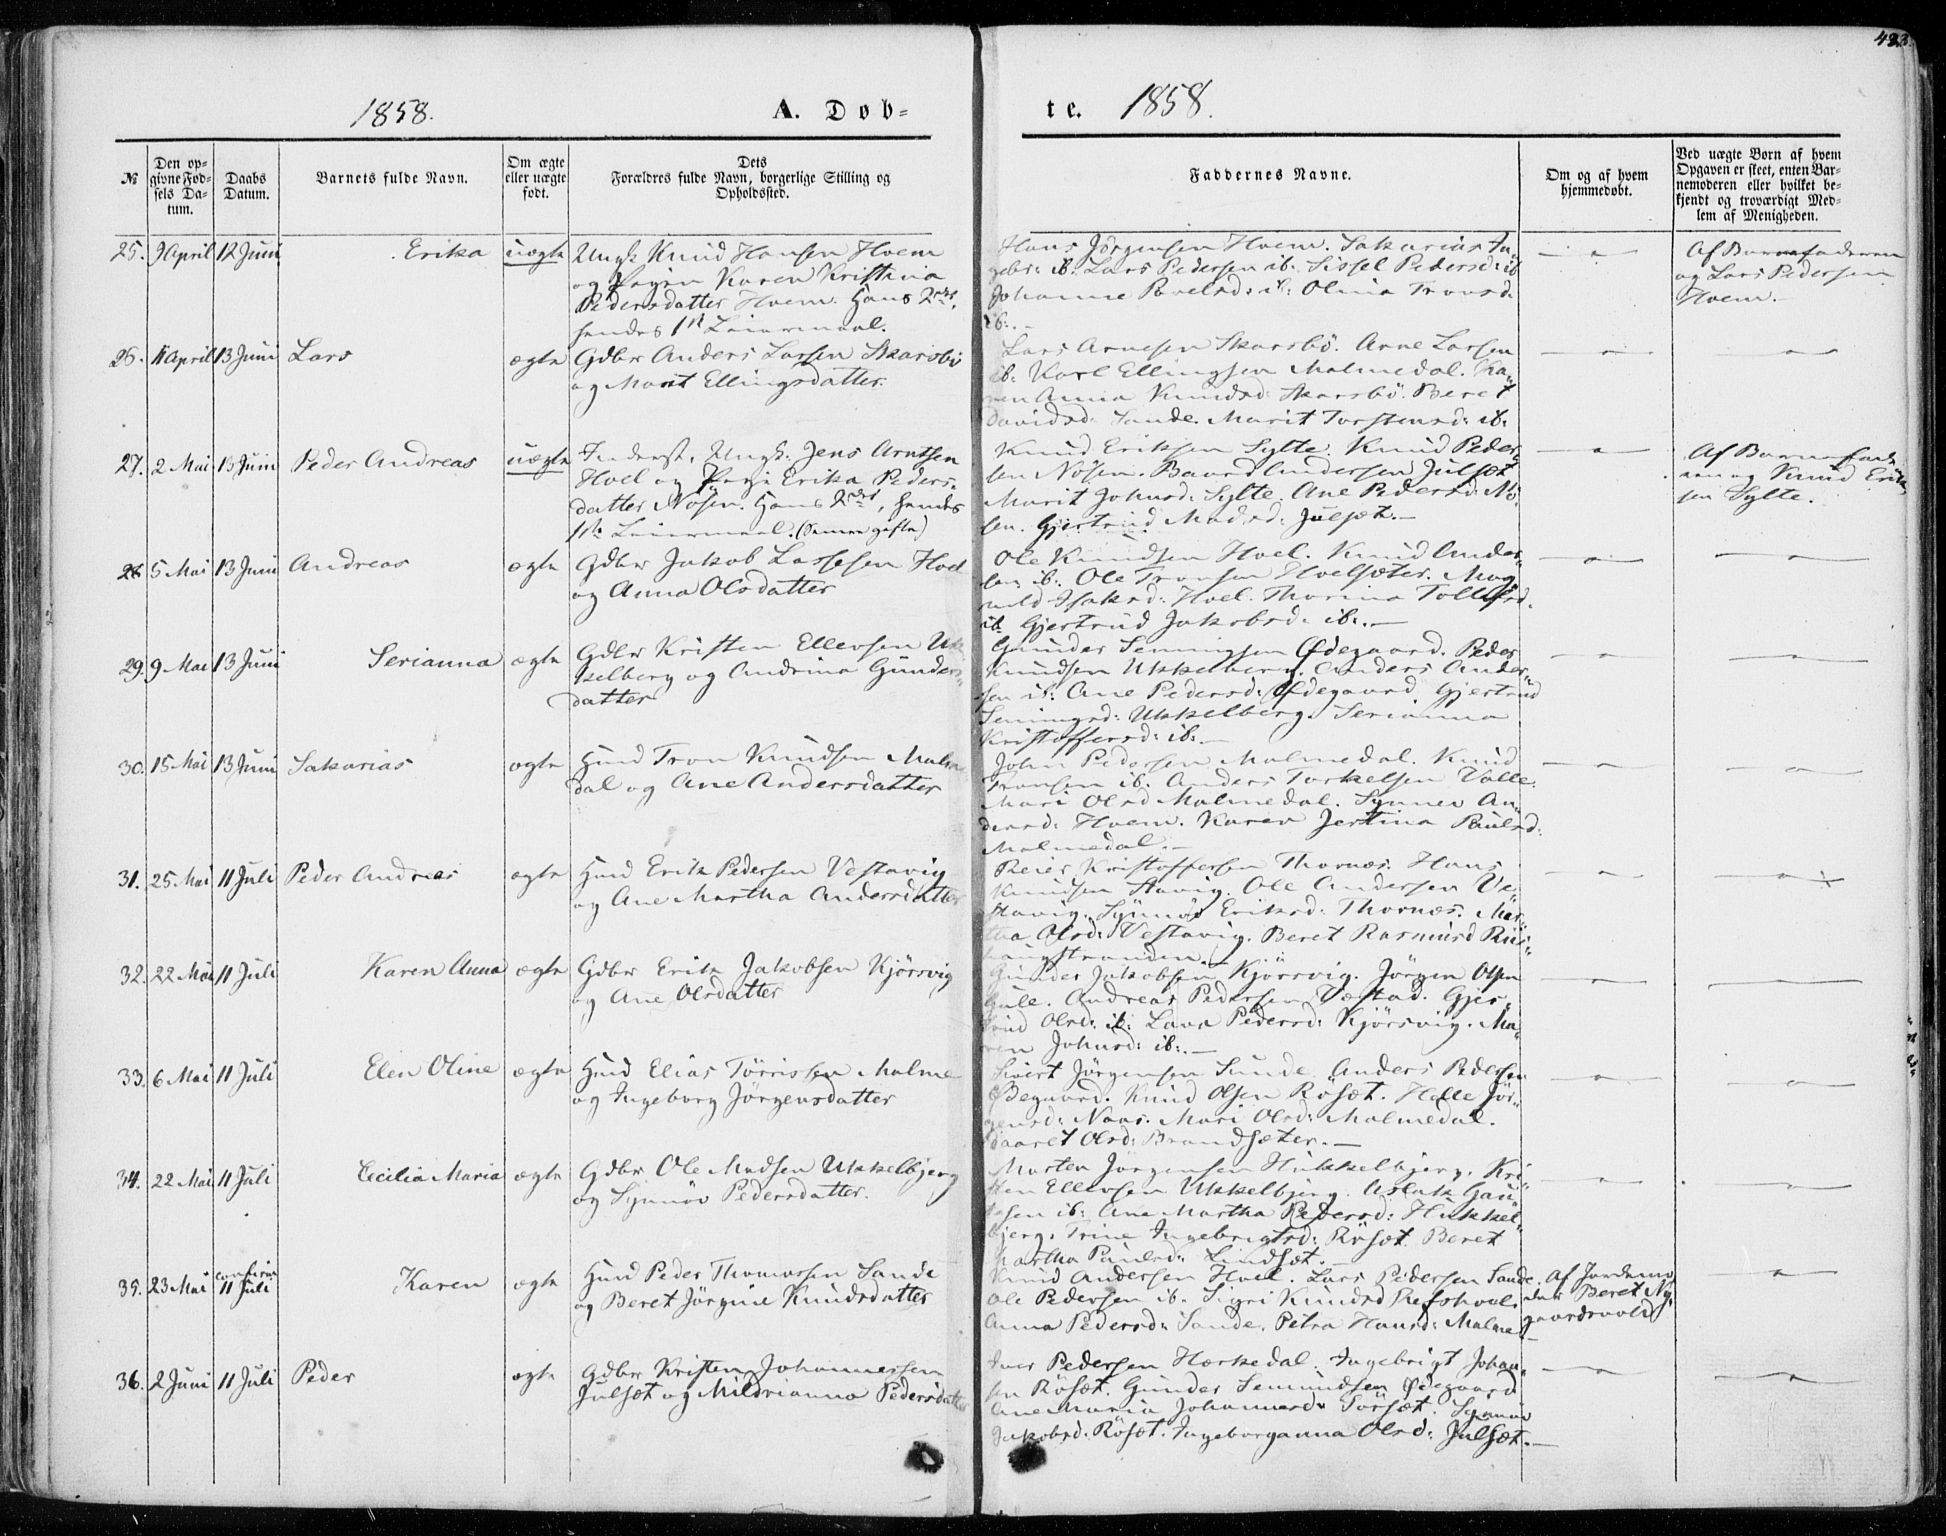 483.
1858.
A. Døb-
te. 1858.
№
Den op-
givne Fød-
sels Da-
tum.
Daabs
Datum.
Barnets fulde Navn.
Om ægte
eller uægte
født.
Dets
Forældres fulde Navn, borgerlige Stilling og
Opholdssted.
Faddernes Navne.
Om og af hvem
hjemmedøbt.
Ved uægte Børn af hvem
Opgaven er skeet, enten Bar-
nemoderen eller hvilket be-
kjendt og troværdigt Med-
lem af Menigheden.
25. 9 April 12 Juni Erika uægte Ungk. Knud Hansen Hoem
og Pigen Karen Kristina
Pedersdatter Hoem. Hans 2det,
hendes 1ste Leiermaal.
Hans Jörgensen Hoem. Sakarias In-
gebr: ib. Lars Pedersen ib: Sissel Pedersd: ib
Johanne Povelsd: ib: Olina Tronsd:
ib:.-
Af Barnefaderen
og Lars Pedersen
Hoem.-
26. 11 April 13 Juni Lars ægte Gdbr Anders Larsen Skarsbö
og Marit Ellingsdatter.
Lars Arnesen Skarsbö. Arne Larsen
ib: Karl Ellingsen Malmedal. Ka-
ren Anna Knudsd: Skarsbö. Beret
Davidsd: Sande. Marit Torstensd: ib.
27. 2 Mai 13 Juni Peder Andreas uægte Inderst, Ungk: Jens Arntsen
Hoel og Pige Erika Peders-
datter Nösen. Hans 2det, hendes
1ste Leiermaal. (Senere gifte)
Knud Eriksen Sylte. Knud Peder-
sen Nösen. Baard Andersen Julsæt
Marit Johnsd: Sylte. Ane Pedersd: Nö-
sen. Gjertrud Madsd: Julsæt.-
og Knud Erik-
sen Sylte.
28. 5 Mai 13 Juni Andreas ægte Gdbr Jakob Lassesen Hoel
og Anna Olsdatter
Ole Knudsen Hoel. Knud Ander-
sen ib: Ole Tronsen Hoelsæter. Mag-
nild Isaksd: Hoel. Thorina Tollefsd.
ib. Gjertrud Jakobsd: ib:.-
29. 9 Mai 13 Juni Serianna ægte Gdbr Kristen Ellevsen Uk-
kelberg og Andrina Gunders-
datter
Gunder Semingsen Ødegaard. Peder
Knudsen Ukkelberg. Anders Ander-
sen ib: Ane Pedersd: Ødegaard. Gjertrud
Semingsd: Ukkelberg. Serianna
Kristoffersd: ib:.-
30. 15 Mai 13 Juni Sakarias ægte Husm Tron Knudsen Malme-
dal og Ane Andersdatter
John Pedersen Malmedal. Knud
Tronsen ib: Anders Torkelsen Valle.
Mari Olsd Malmedal. Synnev An-
dersd: Hoem. Karen Jertina Paulsd:
Malmedal.-
31. 25 Mai 11 Juli Peder Andreas ægte Husm Erik Pedersen Vestavig
og Ane Martha Andersdatter
Reier Kristoffersen Thornæs. Hans
Knudsen Aavig. Ole Andersen Ve-
stavig. Synnöv Eriksd: Thornæs. Mar-
tha Olsd: Vestavig. Beret Rasmusd
32. 22 Mai 11 Juli Karen Anna ægte Gdbr Erik Jakobsen Kjörsvig
og Ane Olsdatter
Gunder Jakobsen Kjörsvig. Jörgen Olsen
Gule. Andreas Pedersen Væstad. Gjer-
trud Olsd: ib: Lava Pedersd: Kjörsvig. Ma-
ren Johnsd: ib:.-
33. 6 Mai 11 Juli Elen Oline ægte Husm Elias Törrissen Malme
og Ingeborg Jörgensdatter
Sivert Jörgensen Sunde. Anders Pedersen
Ødegaard. Knud Olsen Rösæt. Helle Jör-
gensd: Naas. Mari Olsd: Malmedal.
Maret Olsd: Brandsæter.-
34. 22 Mai 11 Juli Cecilia Maria ægte Gdbr Ole Madsen Ukkelbjerg
og Synnöv Pedersdatter.
Morten Jörgensen Hukkelbjerg. Kri-
sten Ellevsen Ukkelbjerg. Aslak Gau-
tesen ib: Ane Martha Pedersd: Hukkel-
bjerg. Trine Ingebrigtsd: Rösæt. Beret
Martha Paulsd: Lindsæt.
35. 23 Mai confirm 11 Juli Karen ægte Husm Peder Thomassen Sande
og Beret Jörgine Knudsdatter
Knud Andersen Hoel. Lars Pedersen Sande.
Ole Pedersen ib. Sigri Knudsd
Anna Pedersd: Sande. Petra Hansd: Malme.-
Af Jordemo-
deren Beret Ny-
gaardsvold
36. 2 Juni 11 Juli Peder ægte Gdbr Kristen Johannessen
Julsæt og Mildrianna Pedersdatter
Iver Pedersen Harkedal. Ingebrigt Johan-
sen Rösæt. Gunder Semundsen Ødegaard
Ane Maria Johannesd: Torsæt. Synnöv
Jakobsd: Rösæt. Ingeborganna Olsd: Julsæt.-